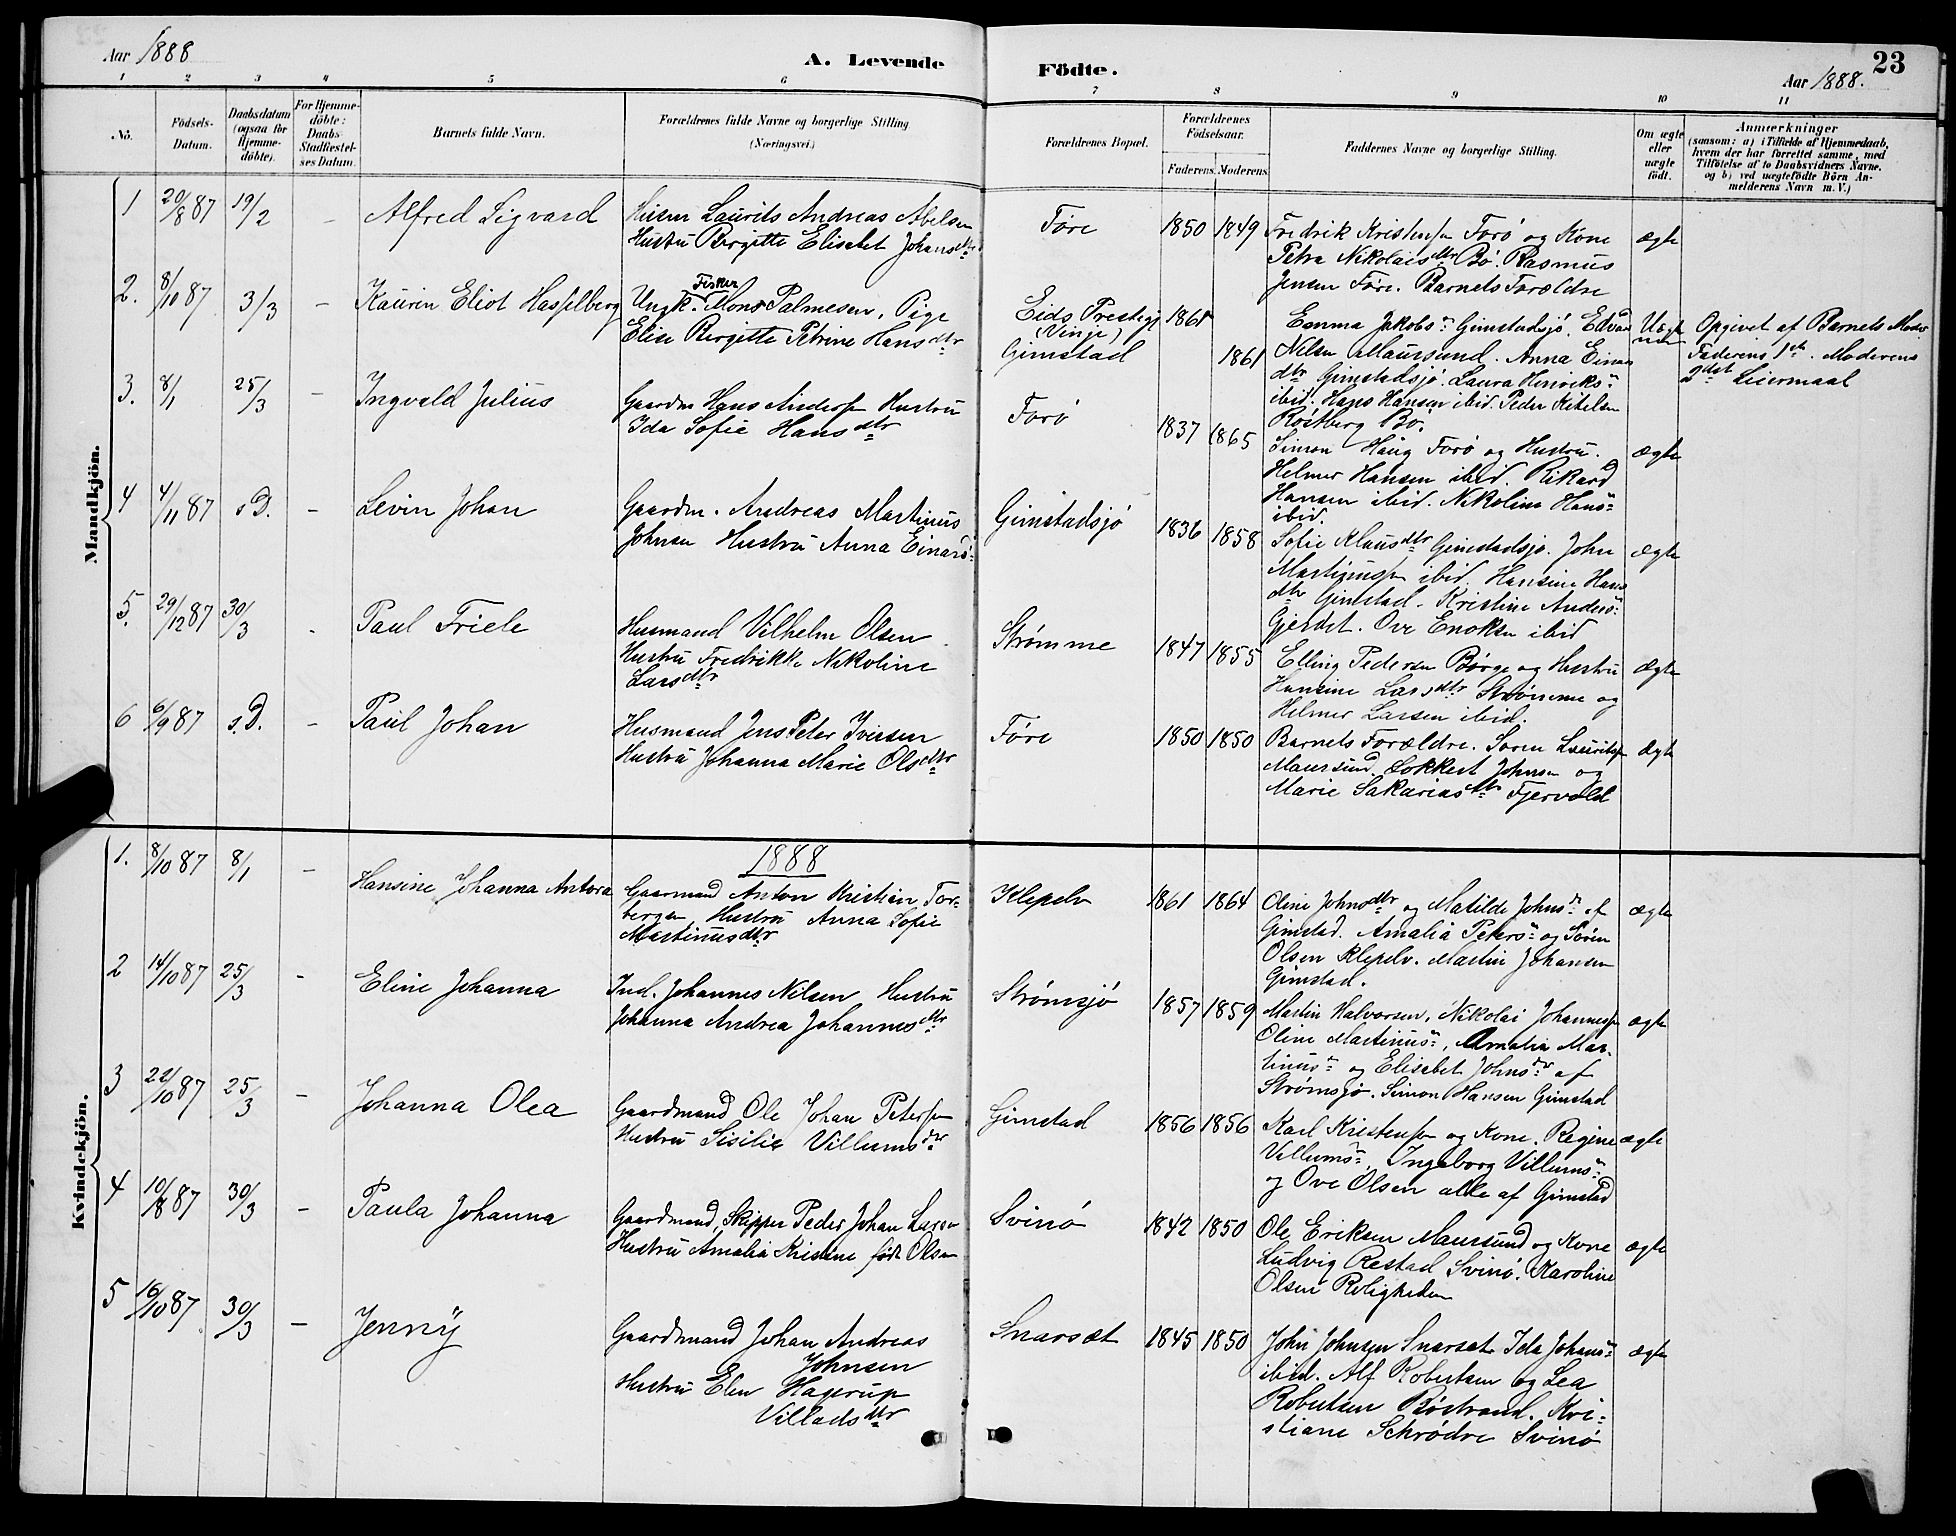 Aar 1888
A. Levende
Födte.
Aar 1888.
23
1 2 3 4 5 6 7 8 9 10 11
No.
Födsels-
Datum.
Daabsdatum
(ogsaa for
Hjemme-
döbte).
For Hjemme-
döbte:
Daabs-
Stadfæstel-
ses Datum.
Barnets fulde Navn.
Forældrenes fulde Navne og borgerlige Stilling
(Næringsvei.)
Forældrenes Bopæl.
Forældrenes
Födselsaar.
Faderens. Moderens.
Faddernes Navne og borgerlige Stilling.
Om ægte
eller
uægte
födt.
Anmærkninger
(saasom: a) i Tilfælde af Hjemmedaab,
hvem der har forrettet samme, med
Tilföielse af to Daabsvidners Navne.
og b) ved uægtefödte Börn An-
melderens Navn m. V.)
Mandkjön.
1 20/8 87 19/2 - Alfred Sigvard
Laurits Andreas Abelsen
Hustru Birgitte Elisabet Johansdtr
Føre 1850 1849
Fredrik Kristensen Forø og Kone
Petra Nikolaisdtr Bø. Rasmus
Jensen Føre. Barnets Forældre
ægte
2. 8/10 87 3/3 - Kaurin Eliot Hasselberg
Fisker
Ungk. Mons Palmesen, Pige
Elise Birgitte Petrine Hansdtr
Eids Prestegj
(Vinje)
Gimstad
1861
1861
Emma Jakobsn Gimstadsjö. Edvard
Nilsen Maursund. Anna Einars
dtr Gimstadsjö. Laura Hinriks-
ibid. Hans Hansen ibid. Peder Kitelsen
Röstberg Bø.
Uægte
Opgivet af Barnets Moder
Faderens 1st. Moderens
2det Leiermaal
3. 8/1 25/3 - Ingvald Julius
Gaardm Hans Andersen Hustru
Ida Sofie Hansdtr
Forø 1837 1865
Simon Haug Forø og Hustru.
Helmer Hansen ibid. Rikard
Hansen ibid. Nikoline Hans-
ibid.
ægte
4 4/11 87 s.D. - Levin Johan
Gaardm. Andreas Martinus
Johnsen Hustru Anna Einars-
Gimstadsjö 1836 1858
Sofie Klausdtr Gimstadsjö. John
Martinussen ibid. Hansine Hans
dtr Gimstad. Kristine Anders-
Gjerdet. Ove Enoksen ibid
ægte
5. 29/12 87 30/3 - Paul Friele
Husmand Vilhelm Olsen
Hustru Fredrikke Nikoline
Larsdtr
Strømme 1847 1855
Elling Pedersen Börge og Hustru
Hansine Larsdtr Strömme og
Helmer Larsen ibid.
ægte
6 6/9 87 s.D. - Paul Johan
Husmand Jens Peter Iversen
Hustru Johanna Marie Olsdtr
Føre 1850 1850
Barnets Forældre. Sören Lauritsen
Maursund. Lokkert Johnsen og
Marie Sakariasdtr Fjervold
ægte
Kvindekjön.
1888
1. 8/10 87 8/1 - Hansine Johanna Antora
Gaarmand Anton Kristian Tor-
bergsen, Hustru Anna Sofie
Martinusdtr
Klepelv 1861 1864
Oline Johnsdtr og Matilde Johns- af
Gimstad. Amalia Peters- og Sören
Olsen Klepelv. Martin Johansen
Gimstad.
ægte
2 14/10 87 25/3 - Eline Johanna
Ind. Johannes Nilsen Hustru
Johanna Andrea Johannesdtr
Strømsjö 1857 1859
Martin Halvorsen, Nikolai Johannessen
Oline Martinus-, Amalia Mar-
tinus- og Elisabet Johnsdr af
Strømsjö. Simon Hansen Gimstad
ægte
3 22/10 87 25/3 - Johanna Olea
Gaardmand Ole Johan Petersen
Hustru Sisilie Villumsdr
Gimstad 1856 1856
Karl Kristensen og Kone. Regine
Villums-, Ingeborg Villums-
og Ove Olsen alle af Gimstad
ægte
4 10/8 87 30/3 - Paula Johanna
Gaardmand, Skipper Peder Johan Larsen
Hustru Amalia Kristine født Olsen
Svinø 1842 1850
Ole Eriksen Maursund og Kone
Ludvig Restad Svinø. Karoline
Olsen Roligheden
ægte
5 16/10 87 30/3 - Jenny
Gaardmand Johan Andreas
Johnsen
Hustru Elen Hagerup
Villadsdtr
Snarsæt 1845 1850
John Johnsen Snarset. Ida Johans-
ibid. Alf Robertsen og Lea
Robertsen Böstrand. Kri-
stiane Schrødre Svinø
ægte